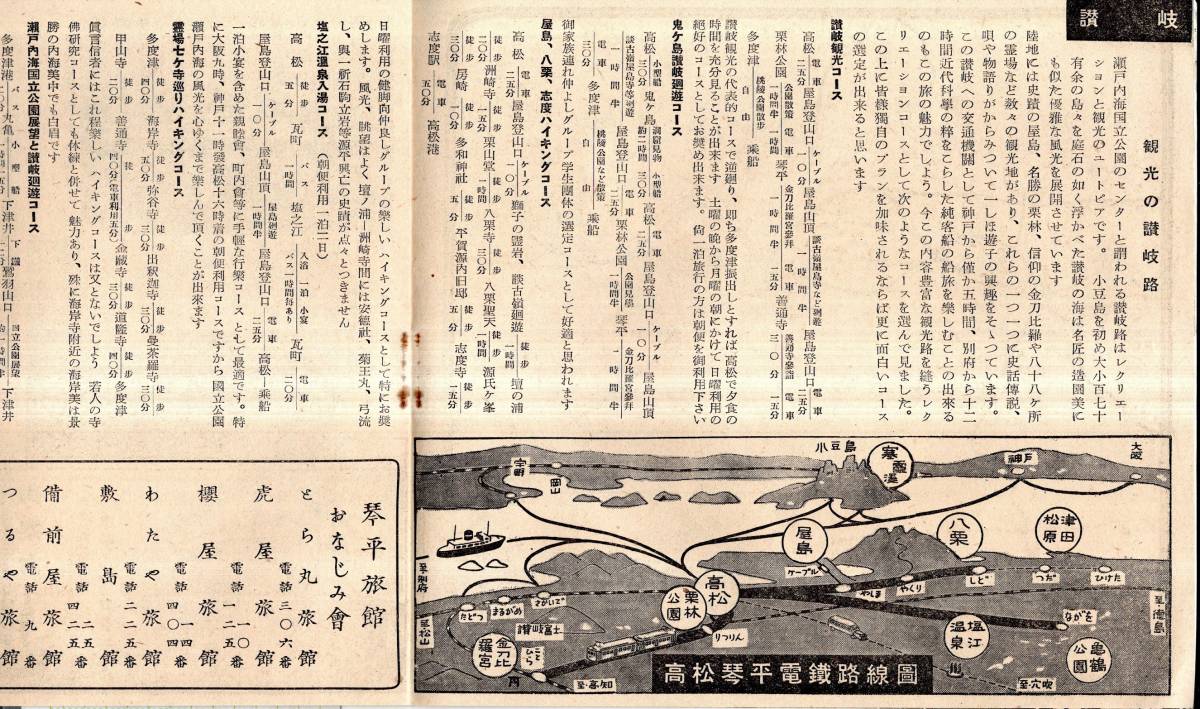 讃岐
観光の讃岐路
瀬戸内海国立公園のセンターと謂われる讃岐路はレクリエー
ションと観光のユートピアです。 小豆島を初め大小百七十
有余の島々を庭石の如く浮かべた讃岐の海は名匠の造園美に
も似た優雅な風光を展開させています
陸地には史蹟の屋島、名勝の栗林、信仰の金刀比羅や八十八ヶ所
の霊場など数々の観光地があり、これらの一つ一つに史話伝説、
唄や物語りがからみついて一しほ遊子の興趣をそゝつています。
この讃岐への交通機関として神戸から僅か五時間、別府から十二
時間近代科學の粋をこらした純客船の船旅を樂しむことの出來る
のもこの旅の魅力でしよう。今この内容豊富な観光路を縫うレク
リエーションコースとして次のようなコースを選んで見ました。
この上に皆様獨自のプランを加味されるならば更に面白いコース
の選定が出來ると思います
讃岐観光コース
高松 電車 二五分 屋島登山口 ケーブル 五分 屋島山頂 談古嶺屋島寺など廻遊 一時間半 屋島登山口 電車 二五分
栗林公園 公園散策 一時間半 電車 一時間 琴平 金刀比羅宮參拜 一時間半 電車 一五分 善通寺 善通寺參詣 三〇分 電車 一五分
多度津 桃陵公園散步 自由 乘船
讃岐観光の代表的コースで逆廻り、即ち多度津振出しとすれば 高松で夕食の
時間を充分見ることが出來ます 土曜の晩から月曜の朝にかけて日曜利用の
絶好のコースとしてお奨め出來ます。尚一泊旅行の方は朝便を御利用下さい
鬼ヶ島讃岐廻遊コース
高松 小型船 三〇分 鬼ヶ島 洞窟見物 約二時間 小型船 三〇分 高松 電車 二五分 屋島登山口 ケーブル 五分 屋島山頂
談古嶺屋島寺等廻遊 一時間半 屋島登山口 電車 二五分 栗林公園 公園見學 一時間半 電車 一時間 琴平 金刀比羅宮參拜 一時間半
電車 三〇分 多度津 桃陵公園など散策 自由 乘船
御家族連れ仲よしグループ学生團体の選定コースとして好適と思われます
屋島、八栗、志度ハイキングコース
高松 電車 二五分 屋島登山口 ケーブル 五分 獅子の霊岩、談古嶺廻遊 徒步 一時間 壇の浦
徒步 二〇分 洲崎寺 徒步 三〇分 栗山堂 徒步 一時間 八栗寺 徒步 三〇分 八栗聖天 徒步 一時間 源氏ヶ峯
徒步 三〇分 房崎 徒步 一時間 多和神社 徒步 五分 平賀源内旧邸 徒步 五分 志度寺 徒步 一五分
志度駅 電車 五〇分 高松港
日曜利用の健脚向仲良しグループの樂しい ハイキングコースとして特にお奬
めします。風光、眺望はよく壇ノ浦―洲崎寺間には安徳社、菊王丸、弓流
し、與一祈石駒立岩等源平興亡の史蹟が点々とつきません
塩之江温泉入湯コース (朝便利用一泊二日)
高松 徒步 五分 瓦町 バス 一時間 塩之江 入浴 一泊 小宴 バス一時間毎あり 瓦町 電車 二〇分
屋島登山口 ケーブル 一〇分 屋島山頂 屋島廻遊 一時間半 屋島登山口 電車 二五分 高松―乘船
一泊小宴を含めた親睦會、町内會等に手軽な行樂コース として最適です。特
に大阪九時、神戸十一時發高松十六時着の朝便利用コースですから 國立公園
瀬戸内海の風光を心ゆくまで樂しんで頂くことが出來ます
霊場七ヶ寺巡りハイキングコース
多度津 徒步 四〇分 海岸寺 徒步 五〇分 弥谷寺 徒步 三〇分 出釈迦寺 徒步 三分 曼茶羅寺 徒步 三〇分
甲山寺 徒步 二〇分 善通寺 徒步 四〇分(電車利用五分) 金蔵寺 徒步 三〇分 道隆寺 徒步 四〇分 多度津
眞言信者にはこれ程樂しい ハイキングコースは又とないでしよう 若人の寺
佛研究コースとしても体練と併せて 魅力あり、殊に海岸寺附近の海岸美は景
勝の内海美中でも白眉です
瀬戸内海国立公園展望と讃岐廻遊コース
多度津港 バス 二〇分 丸亀 小型船 一時間一五分 下津井 下電 二分 鷲羽山口 国立公園展望 約一時間半 下津井
大阪
神戸
小豆島
寒霞渓
岡山
宇野
屋島
八栗
津田松原
ケーブル
やしま
やくり
しど
つだ
ひけた
至別府
至松山
たどつ
まるがめ
さかいで
讃岐富士
高松
栗林公園
りつりん
塩江温泉
ながを
至徳島
亀鶴公園
金刀比羅宮
ことひら
至高知
至穴吹
高松琴平電鐵路線圖
琴平旅館
おなじみ會
とら丸旅館 電話 三〇六番
虎屋旅館 電話 一〇 一二五番
櫻屋旅館 電話 一四 四〇四番
わたや旅館 電話 二二番
敷島館 電話 二五 四二五番
備前屋旅館 電話 九番
つるや旅館